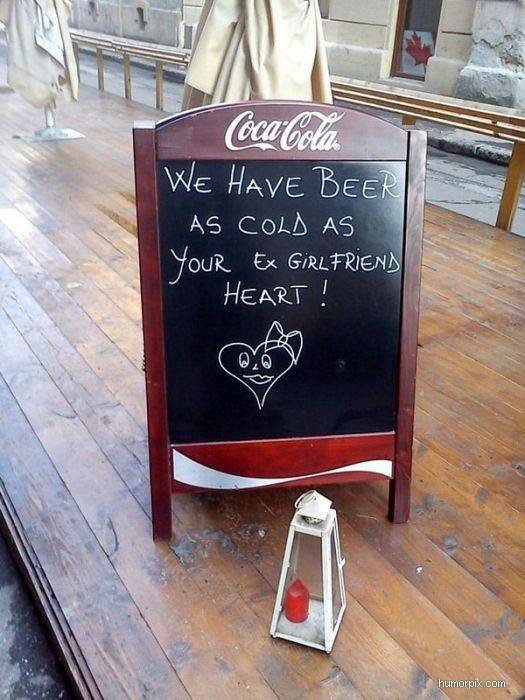 Coca-Cola
WE HAVE BEER
AS COLD AS
YOUR EX GIRLFRIEND
HEART !
humorpix.com